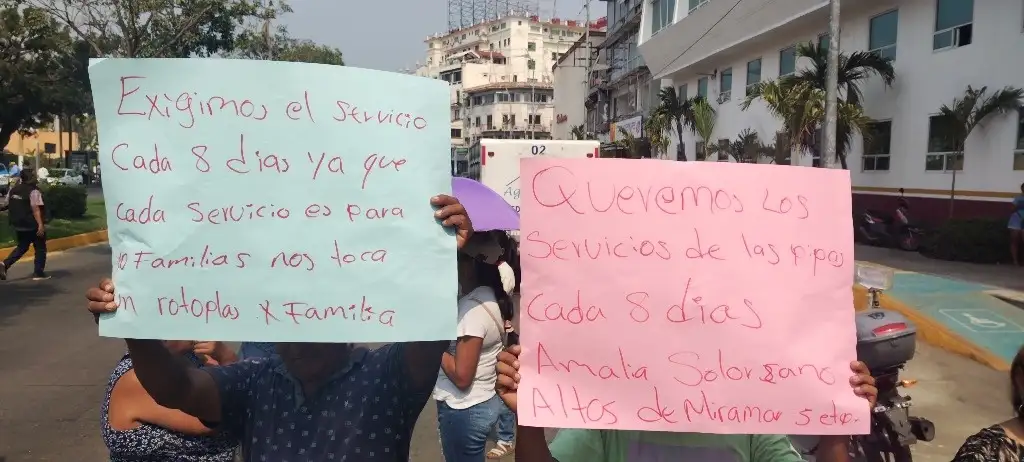 Exigimos el servicio
Cada 8 dias ya que
cada servicio es para
10 Familias nos toca
un rotoplas x Familia
02
Queremos Los
Servicios de las pipas
Cada 8 dias
Amalia Solorzano
Altos de Miramar